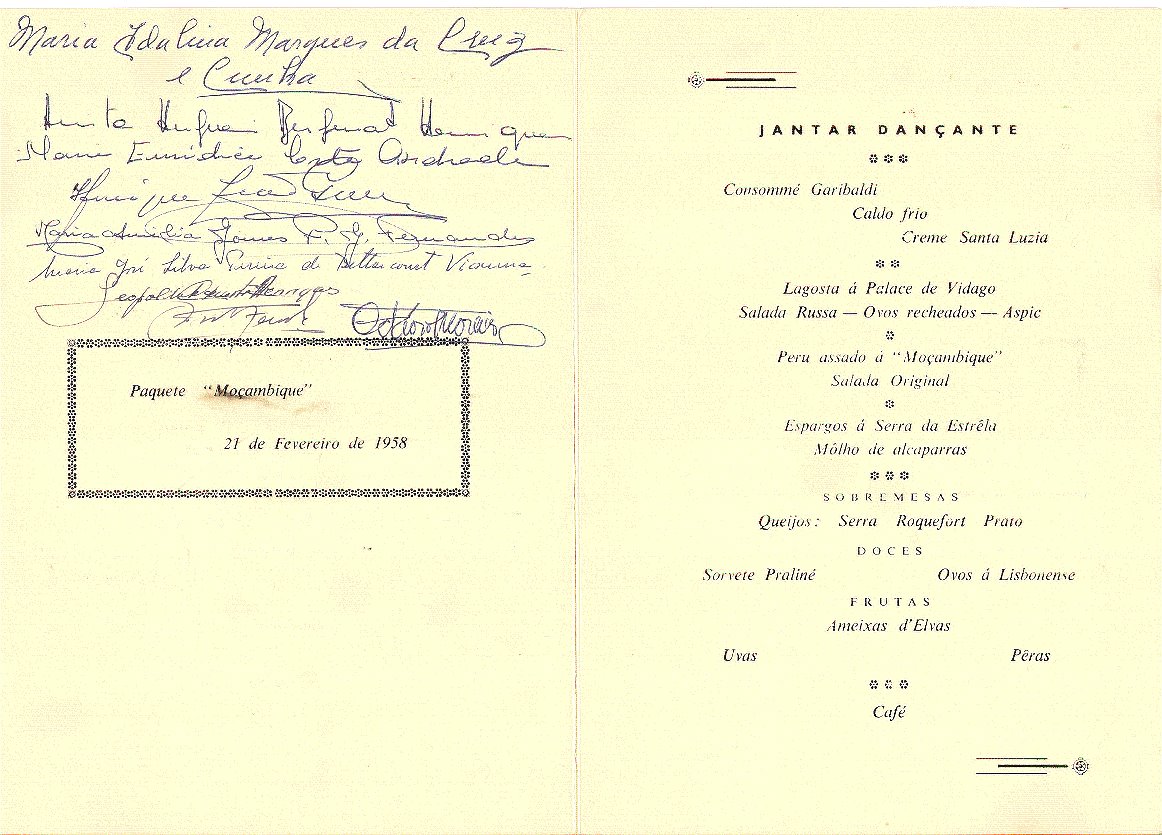 Maria Idalina Marques da Cruz
e Cunha
Maria Eurídice Costa Andrade
Maria Amélia Gomes F. G. Fernandes
Maria José Silva Pereira de Bettencourt Vianna
Paquete "Moçambique"
21 de Fevereiro de 1958
JANTAR DANÇANTE
Consommé Garibaldi
Caldo frio
Creme Santa Luzia
Lagosta á Palace de Vidago
Salada Russa — Ovos recheados — Aspic
Peru assado á "Moçambique"
Salada Original
Espargos á Serra da Estrêla
Môlho de alcaparras
SOBREMESAS
Queijos: Serra Roquefort Prato
DOCES
Sorvete Praliné Ovos á Lisbonense
FRUTAS
Ameixas d'Elvas
Uvas Pêras
Café